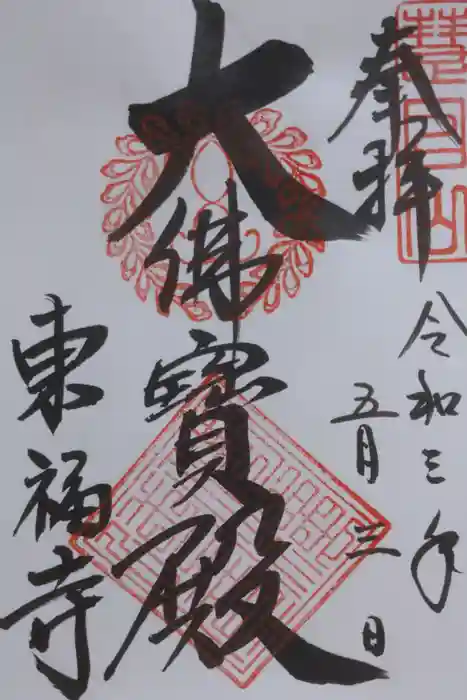 奉拝
令和三年
五月三日
大佛寳殿
東福寺